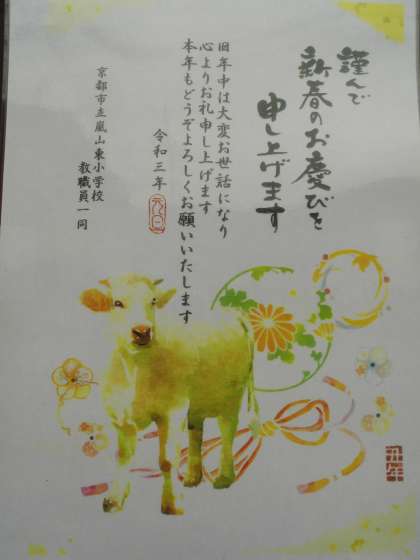 謹んで
新春のお慶びを
申し上げます
旧年中は大変お世話になり
心よりお礼申し上げます
本年もどうぞよろしくお願いいたします
令和三年 元旦
京都市立嵐山東小学校
教職員一同